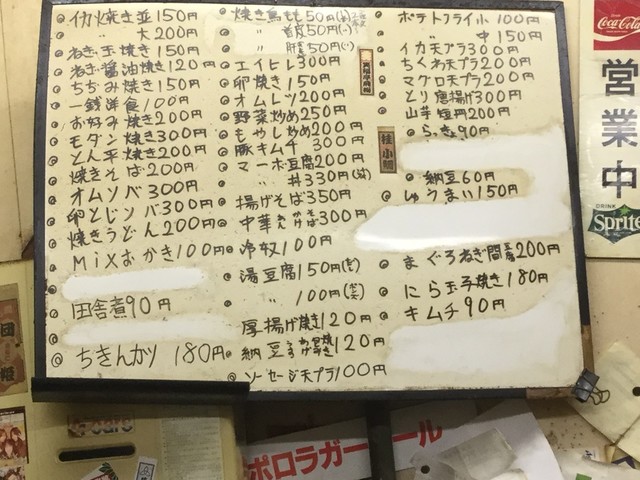 イカ焼き並150円
〃 大200円
ねぎ玉焼き150円
ねぎ醤油焼き120円
ちぢみ焼き150円
一銭洋食100円
お好み焼き200円
モダン焼き300円
とん平焼き200円
焼きそば200円
オムソバ300円
卵とじソバ300円
焼きうどん200円
Mixおかき100円
田舎煮90円
ちきんカツ 180円
焼き鳥もも50円
〃 首皮50円
〃 肝50円
エイヒレ300円
卵焼き150円
オムレツ200円
野菜炒め250円
もやし炒め200円
豚キムチ 300円
マーボ豆腐200円
〃 丼330円
揚げそば350円
中華 300円
冷奴100円
湯豆腐150円
〃 100円
厚揚げ焼き120円
納豆 120円
ソーセージ天プラ100円
ポテトフライ小100円
〃 中150円
イカ天プラ300円
ちくわ天プラ200円
マグロ天プラ200円
とり唐揚げ300円
山芋短冊200円
らっきょ90円
納豆60円
しゅうまい150円
まぐろねぎ間 200円
にら玉子焼き180円
キムチ90円
桂小鯛
Coca-Cola
営業中
DRINK
Sprite
団
姫
care
ポロラガー
ール